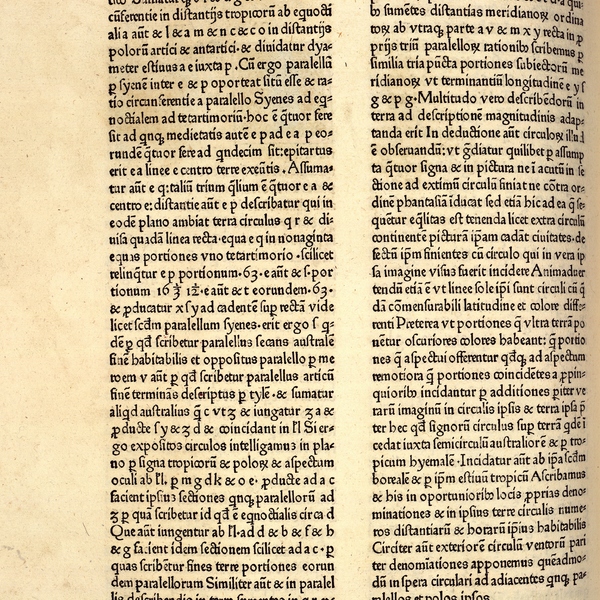 cũferentie in distantijs tropicorũ ab equocti
ali a aũt & l & a m & n c & c o in distantijs
polorũ artici & antartici· & diuidatur dya⸗
meter estiuus a e iuxta p . Cũ ergo paralellũ
ꝑ syenẽ inter e & p oporteat sitũ esse & ra⸗
tio circunferentie a paralello Syenes ad eq⸗
noctialem ad tetartimoriũ· hoc ẽ q̃tuor fere
sit ad qnqꝫ medietatis autẽ e p ad e a p eo⸗
rundẽ q̃tuor fere ad qndecim sit: epitartus
erit e a linee e centro terre exeũtis . Assuma⸗
tur aũt e q: taliũ trium q̃lium ẽ q̃tuor e a &
centro e: distantie aũt e p describatur qui in
eodẽ plano ambiat terra circulus q r & di⸗
uisa quadã linea recta· equa e q in nonaginta
equas portiones vno tetartimorio · scilicet
relinq̃tur e p portionum· 63· e aũt & s· por
tionum 16 & t eorundem· 63·
& ꝓducatur x s y ad cadentẽ sup rectã vide
licet scdm̃ paralellum syenes· erit ergo s q⸗
dẽ ꝑ qd̃ scribetur paralellus secans australẽ
finẽ habitabilis et oppositus paralello ꝑ me
roem v aũt ꝑ qd̃ scribetur paralellus articũ
finẽ terminãs descriptus ꝑ tylẽ · & sumatur
aliqd australius q̃ c vt z & iungatur z a &
ꝓducte s y & z d & coincidant in Si er⸗
go expositos circulos intelligamus in pla⸗
no ꝑ signa tropicorũ & poloꝝ & aspectum
oculi ab ꝑ m g d k & o e · ꝓducte ad a c
facient ipsius sectiones qnqꝫ paralellorũ ad
z ꝑ quã scribetur id qd̃ ẽ eqnoctialis circa d
Que aũt iungentur ab ad d & b & f & h
& g facient idem sectionem scilicet ad a c · ꝑ
quas scribẽtur fines terre portiones eorun
dem paralellorum Similiter aũt & in paralel
lis describendis in terra sumentur in q r p⸗
b sumẽtes distantias meridianoꝝ ordina
toꝝ ab vtraqꝫ parte a v & m x y recta in ꝓ
prijs triũ paralelloꝝ rationib scribemus ꝑ
similia tria pũcta portiones subiectorũ me
ridianoꝝ vt terminantiũ longitudinẽ e y f
g & p g · Multitudo vero describẽdorũ in
terra ad descriptionẽ magnitudinis adap⸗
tanda erit In deductione aũt circuloꝝ illud
ẽ obseruandũ: vt q̃diatur quilibet ꝑ assump
ta q̃tuor signa & in pictura ne ĩ acutũ in se
ctione ad extimũ circulũ finiat ne cõtra or⸗
dinẽ phantasiã ĩducat sed etiã hic ad ea q̃ se⸗
quẽtur eq̃litas est tenenda licet extra circulũ
continentẽ picturã ip̃am cadãt ciuitates· de
fectũ ip̃m finientes cũ circulo qui in vera ip
sa imagine visus fuerit incidere Animaduer
tendũ etiã ẽ vt linee sole ip̃i sunt circuli cũ q̃
dã cõmensurabili latitudine et colore diffe⸗
renti Preterea vt portiones q̃ vltra terrã po
nẽtur obscuriores colores habeant: q̃ portio
nes q̃ aspectui offerentur qd̃qꝫ ad aspectum
remotiora q̃ portiones coincidẽtes a ꝓpin⸗
quiorib incidantur ꝑ additiones piter ve
rarũ imaginũ in circulis ipsis & terra ipsa p̃
ter hec qd̃ signorũ circulus sup terrã qdẽ ĩ
cedat iuxta semicirculũ australiorẽ & ꝑ tro⸗
picum hyemalẽ · Incidatur aũt ab ip̃a scdm̃
borealẽ & ꝑ ip̃m estiuũ tropicũ Ascribamus
& his in oportunioribo locis ꝓprias deno⸗
minationes & in ipsius terre circulis nume⸗
ros distantiarũ & horarũ ip̃ius habitabilis
Circiter aũt exteriorẽ circulũ ventorũ pari
ter denomĩationes apponemus quẽadmo⸗
dũ in spera circulari ad adiacentes qnqꝫ pa⸗
ralellos et polos ipsos